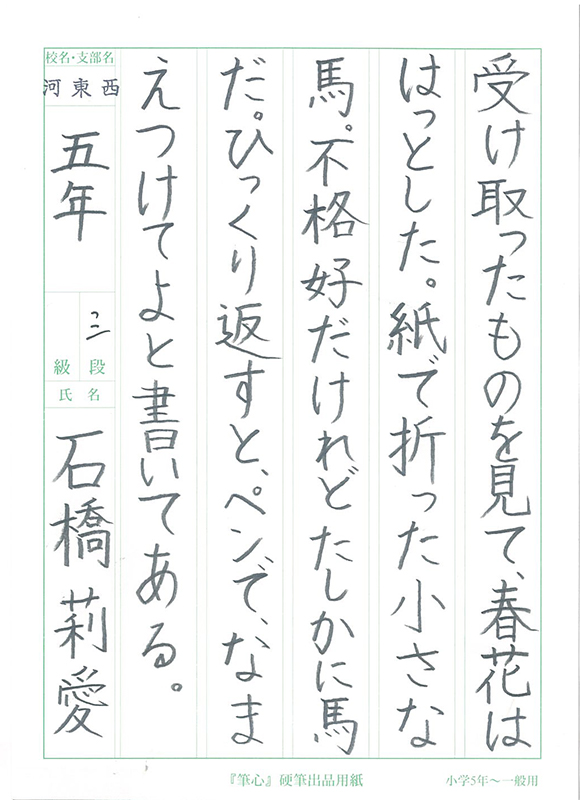 受け取ったものを見て、春花は
はっとした。紙で折った小さな
馬。不格好だけれどたしかに馬
だ。ひっくり返すと、ペンで、なま
えつけてよと書いてある。
校名・支部名
河東西
五年
段
級
氏名
石橋莉愛
『筆心』硬筆出品用紙
小学5年～一般用